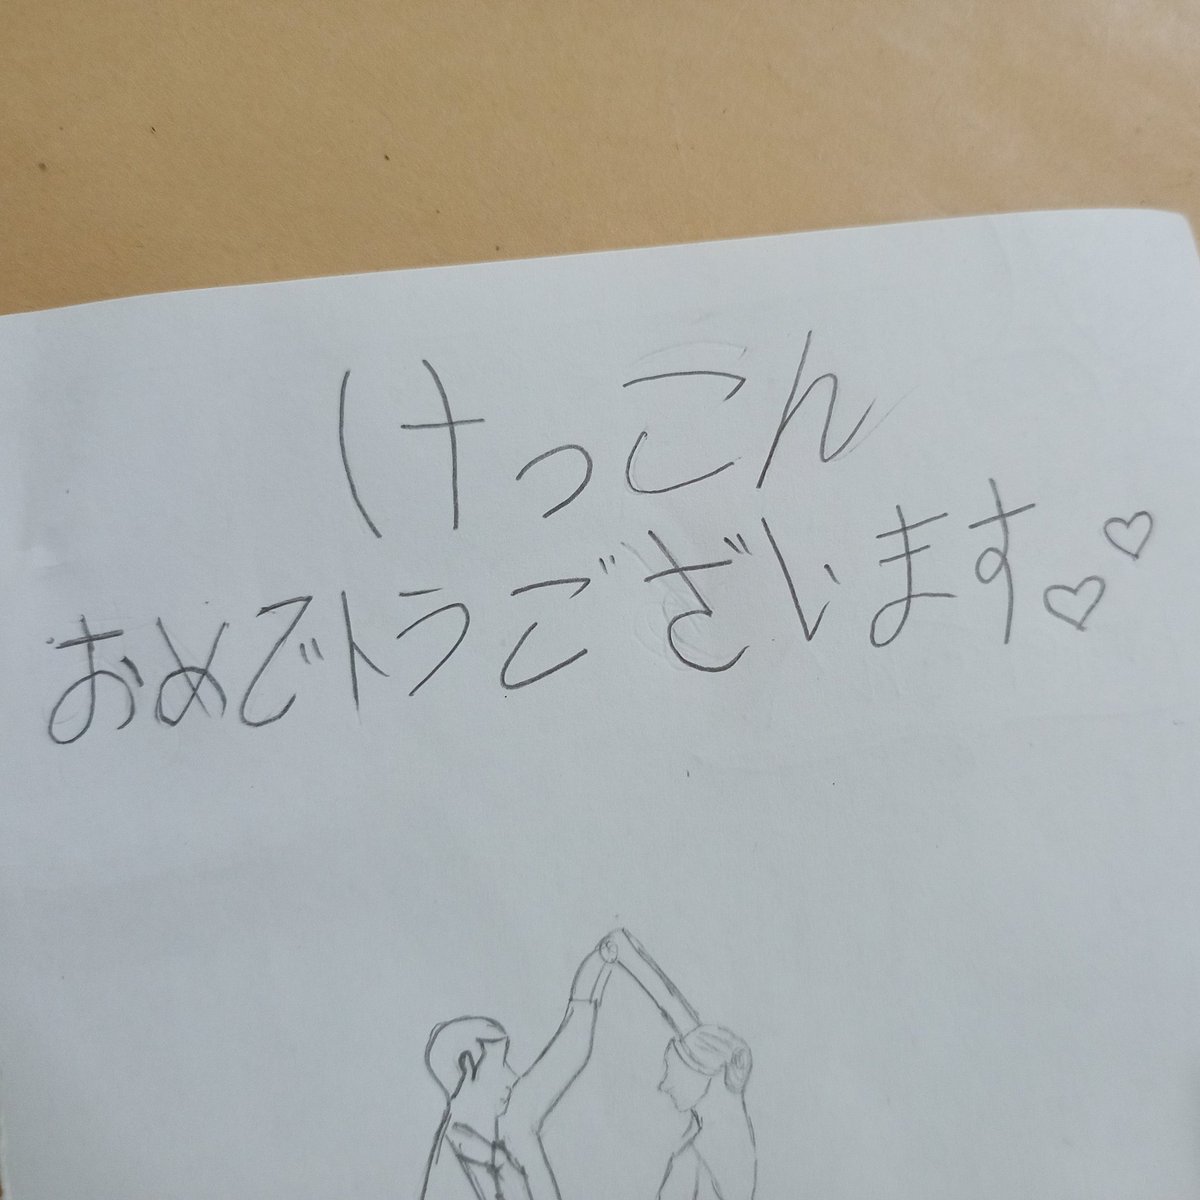 けっこん
おめでトうございます♡♡